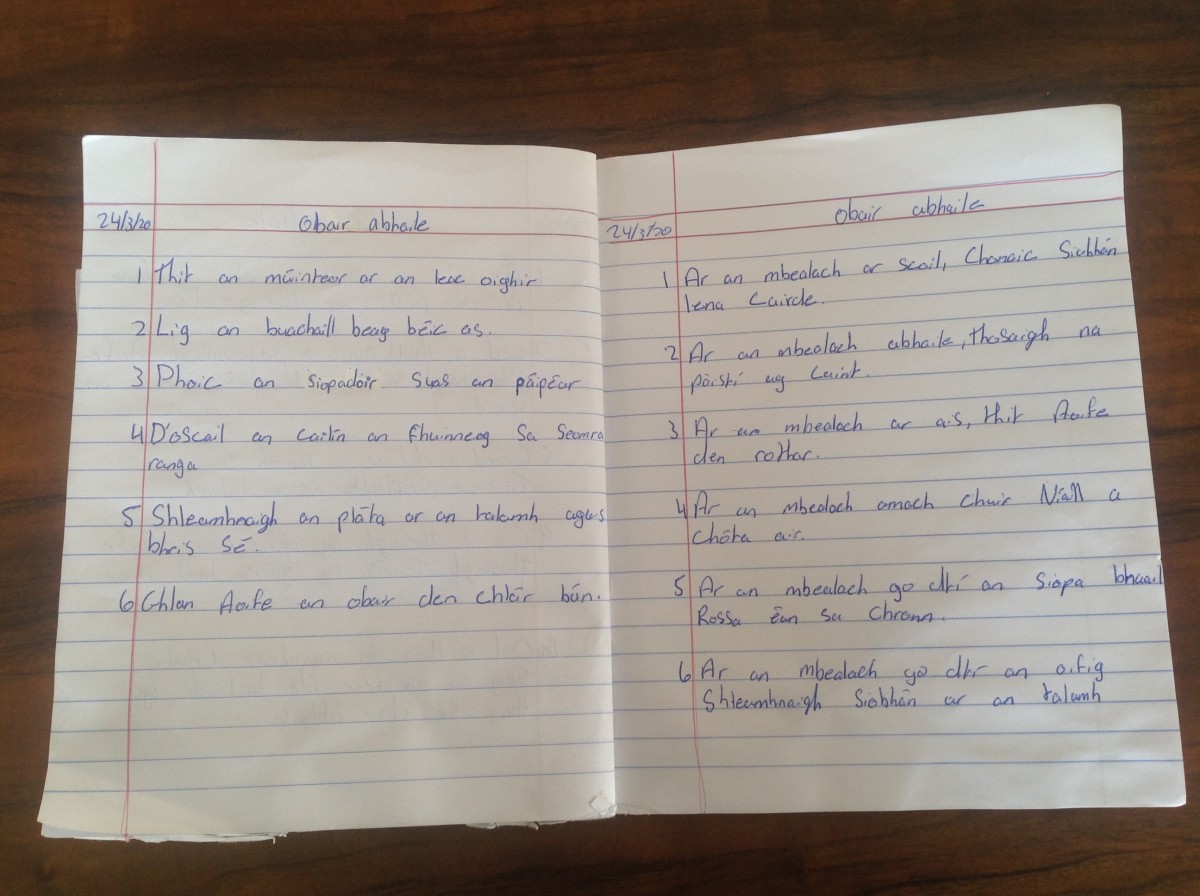 24/3/20 Obair abhaile
1 Thit an múinteor ar an leac oighir
2 Lig an buachaill beag béic as.
3 Phoic an siopadóir suas an páipéar
4 D'oscail an cailín an fhuinneog sa seomra
ranga
5 Shleamhnaigh an pláta ar an talamh agus
bhris sé.
6 Ghlan Aoife an obair den chlár bán.
24/3/20 Obair abhaile
1 Ar an mbealach ar scoil, Chonaic Siobhán
lena Cairde.
2 Ar an mbealach abhaile, thosaigh na
páistí ag Caint.
3 Ar an mbealach ar ais, thit Aoife
den rothar.
4 Ar an mbealach amach chuir Niall a
Chóta air.
5 Ar an mbealach go dtí an siopa bhuail
Rossa éan sa Chrann.
6 Ar an mbealach go dtí an oifig
Shleamhnaigh Siobhán ar an talamh